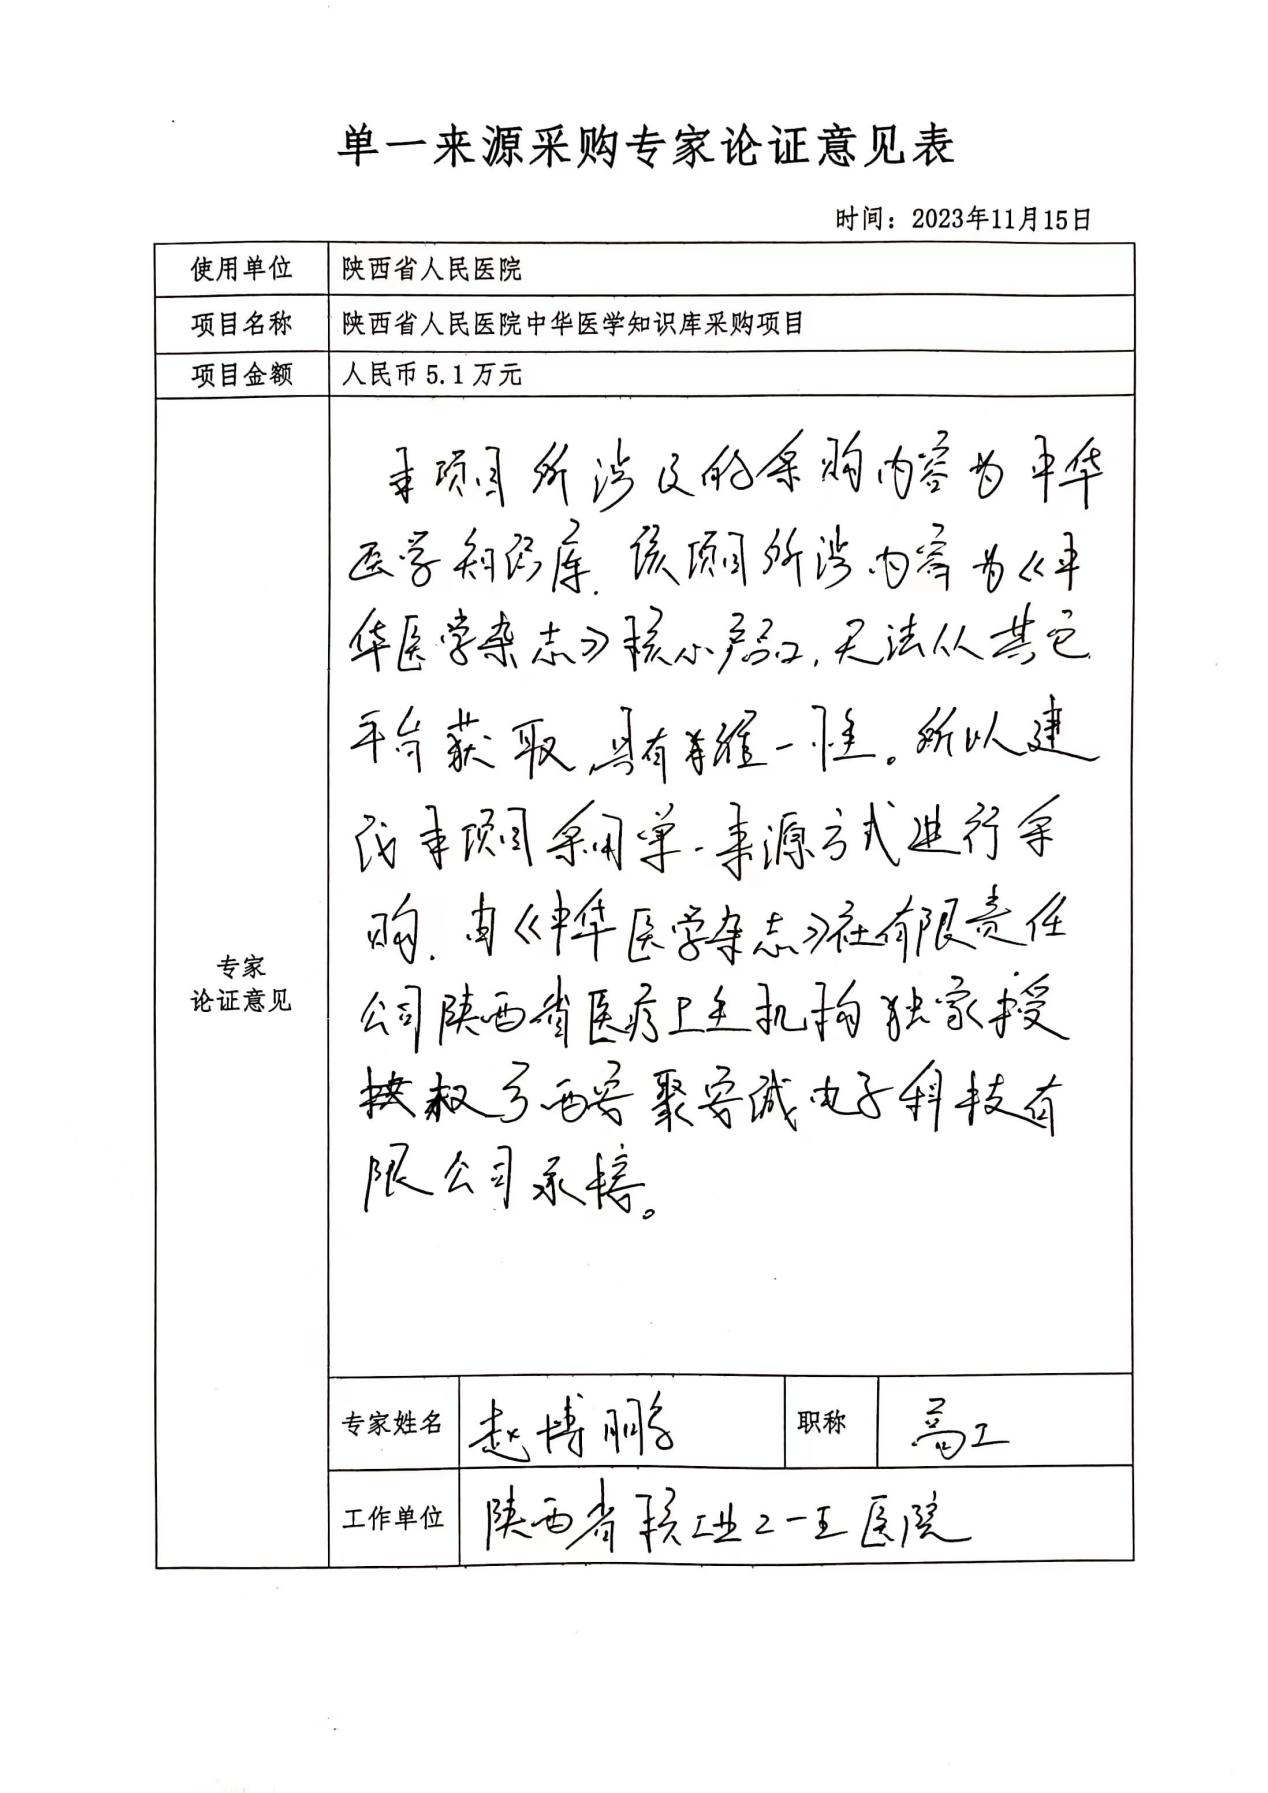 单一来源采购专家论证意见表
时间：2023年11月15日
使用单位 陕西省人民医院
项目名称 陕西省人民医院中华医学知识库采购项目
项目金额 人民币5.1万元
专家
论证意见
本项目所涉及的采购内容为中华
医学知识库.该项目所涉内容为《中
华医学杂志》核心产品,无法从其它
平台获取,具有唯一性。所以建
议本项目采用单一来源方式进行采
购.由《中华医学杂志》社有限责任
公司陕西省医疗卫生机构独家授
权 西安聚安诚电子科技有
限公司承接。
专家姓名 赵博鹏 职称 高工
工作单位 陕西省核工业二一五医院